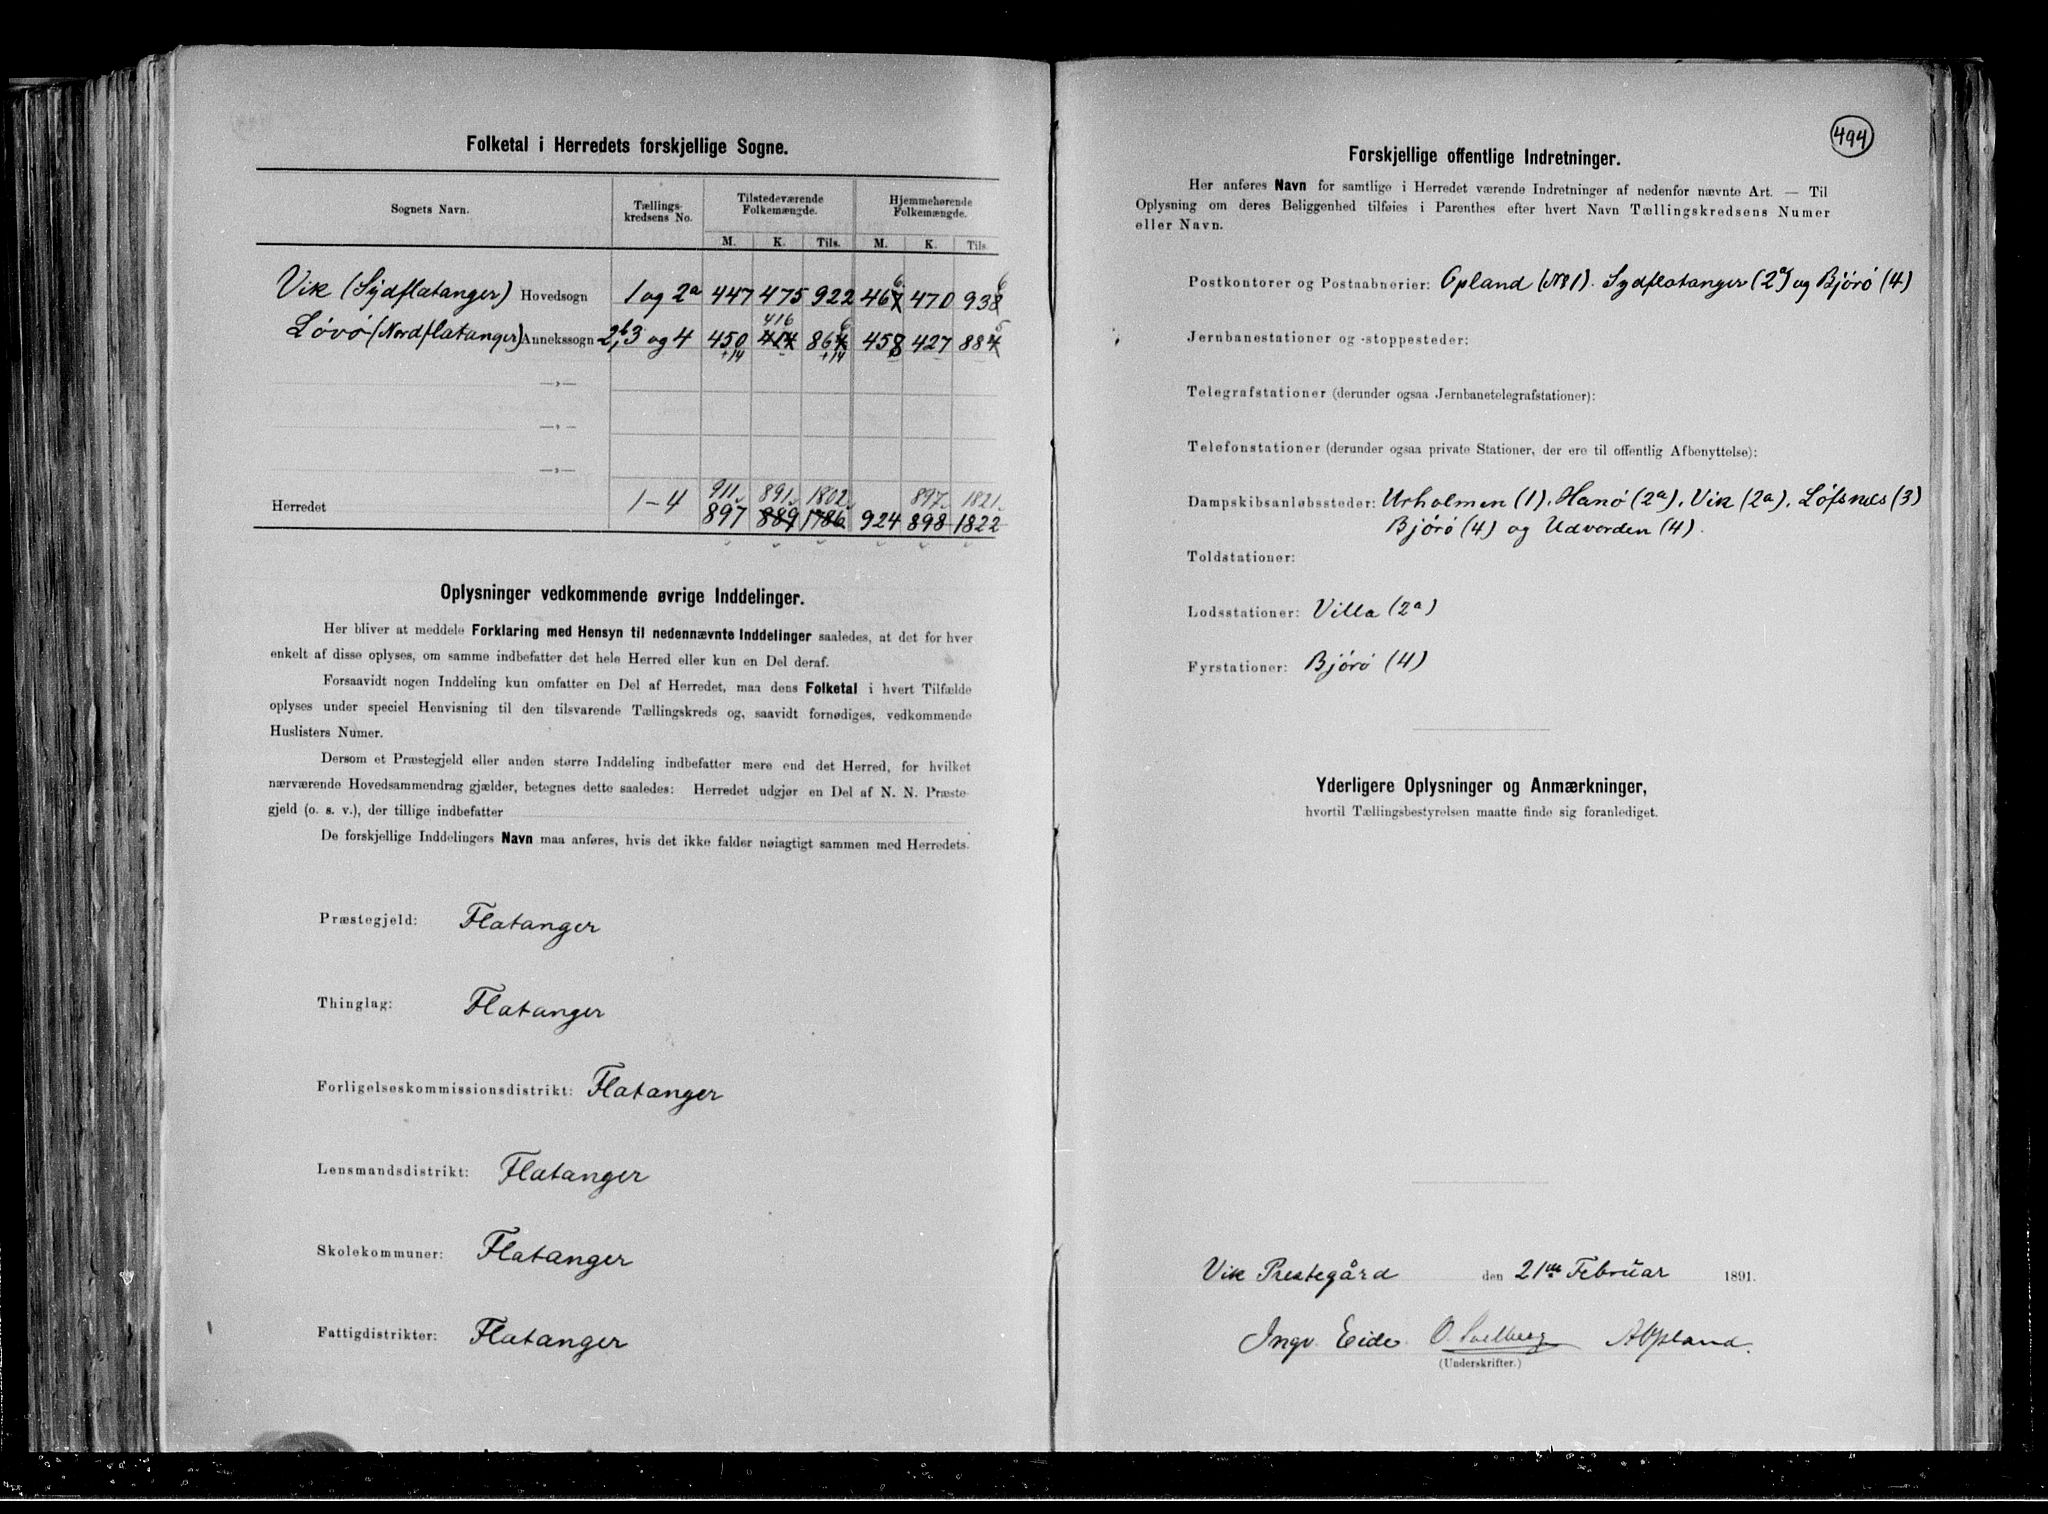 Folketal i Herredets forskjellige Sogne.
Sognets Navn. Tællings-kredsens No. Tilstedeværende Folkemængde. Hjemmehørende Folkemængde.
M. K. Tils. M. K. Tils.
Vik (Sydflatanger) Hovedsogn 1 og 2a 447 475 922 467 6 470 938 6
416 6 5
Løvø (Nordflatanger) Annekssogn 2b, 3 og 4 450 414 864 458 427 884
+14 +14
—»—
—»—
—»—
911 891 1802 897 1821
Herredet 1-4 897 889 1786 924 898 1822
Oplysninger vedkommende øvrige Inddelinger.
Her bliver at meddele Forklaring med Hensyn til nedennævnte Inddelinger saaledes, at det for hver
enkelt af disse oplyses, om samme indbefatter det hele Herred eller kun en Del deraf.
Forsaavidt nogen Inddeling kun omfatter en Del af Herredet, maa dens Folketal i hvert Tilfælde
oplyses under speciel Henvisning til den tilsvarende Tællingskreds og, saavidt fornødiges, vedkommende
Huslisters Numer.
Dersom et Præstegjeld eller anden større Inddeling indbefatter mere end det Herred, for hvilket
nærværende Hovedsammendrag gjælder, betegnes dette saaledes: Herredet udgjør en Del af N. N. Præste-
gjeld (o. s. v.), der tillige indbefatter
De forskjellige Inddelingers Navn maa anføres, hvis det ikke falder nøiagtigt sammen med Herredets.
Præstegjeld: Flatanger
Thinglag: Flatanger
Forligelseskommissionsdistrikt: Flatanger
Lensmandsdistrikt: Flatanger
Skolekommuner: Flatanger
Fattigdistrikter: Flatanger
494
Forskjellige offentlige Indretninger.
Her anføres Navn for samtlige i Herredet værende Indretninger af nedenfor nævnte Art. — Til
Oplysning om deres Beliggenhed tilføies i Parenthes efter hvert Navn Tællingskredsens Numer
eller Navn.
Postkontorer og Postaabnerier: Opland (No 1). Sydflatanger (2a) og Bjørø (4)
Jernbanestationer og -stoppesteder:
Telegrafstationer (derunder ogsaa Jernbanetelegrafstationer):
Telefonstationer (derunder ogsaa private Stationer, der ere til offentlig Afbenyttelse):
Dampskibsanløbssteder: Urholmen (1). Hanø (2a). Vik (2a). Løfsnes (3)
Bjørø (4) og Udvorden (4).
Toldstationer:
Lodsstationer: Villa (2a)
Fyrstationer: Bjørø (4)
Yderligere Oplysninger og Anmærkninger,
hvortil Tællingsbestyrelsen maatte finde sig foranlediget.
Vik Prestegård den 21de Februar 1891.
Ingv. Eide. O. Soelberg A Opland.
(Underskrifter.)